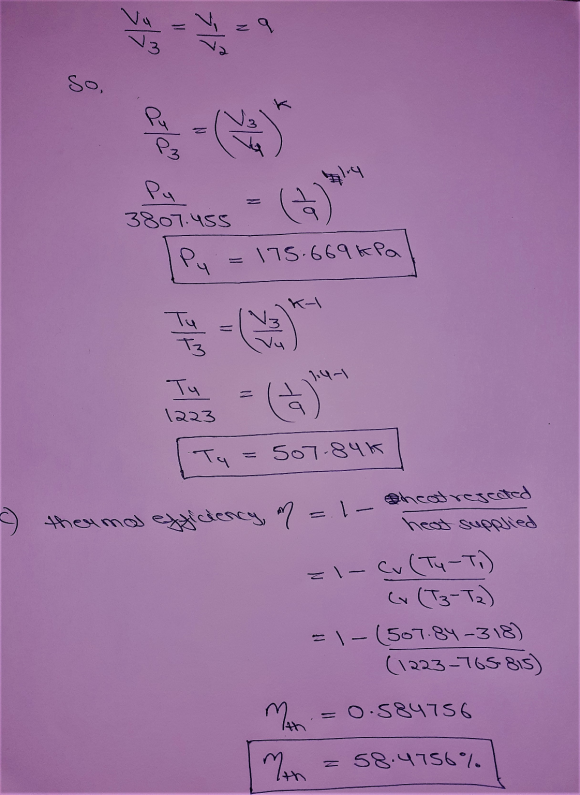 V4/V3 = V1/V2 = 9
So,
P4/P3 = (V3/V4)^k
P4/3807.455 = (1/9)^1.4
P4 = 175.669 kPa
T4/T3 = (V3/V4)^k-1
T4/1223 = (1/9)^1.4-1
T4 = 507.84K
c) thermal efficiency, η = 1 - heat rejected/heat supplied
= 1 - Cv(T4-T1)/Cv(T3-T2)
= 1 - (507.84-318)/(1223-765.815)
ηth = 0.584756
ηth = 58.4756%